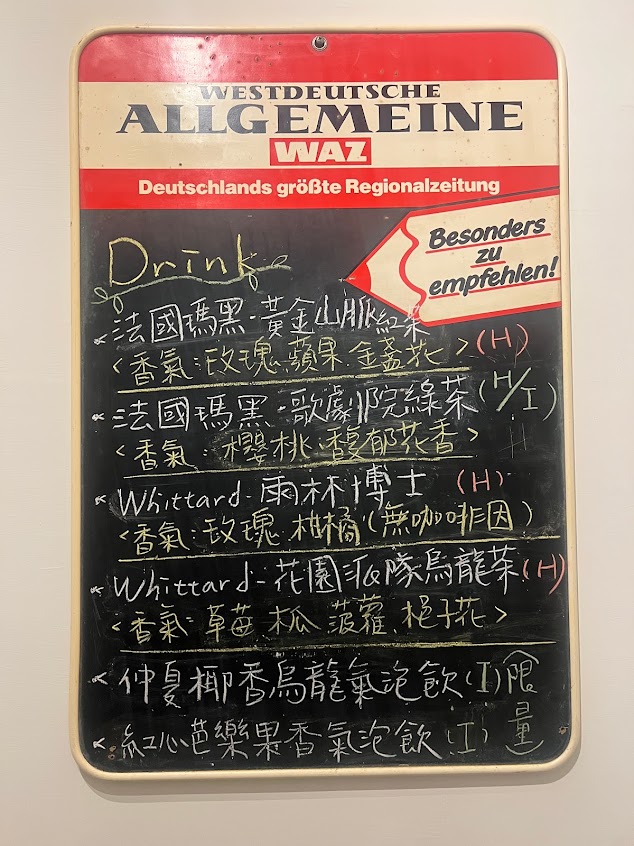 WESTDEUTSCHE
ALLGEMEINE
WAZ
Deutschlands größte Regionalzeitung
Besonders
zu
empfehlen!
Drink
法國瑪黑·黃金山脈紅茶
<香氣:玫瑰.蘋果.金盞花> (H)
法國瑪黑·歌劇院綠茶 (H/I)
<香氣:櫻桃.馥郁花香>
Whittard-雨林博士 (H)
<香氣:玫瑰.柑橘(無咖啡因)
Whittard-花園派隊烏龍茶(H)
<香氣:草莓.木瓜.菠蘿.梔子花>
仲夏椰香烏龍氣泡飲(I)(限量)
紅心芭樂果香氣泡飲(I)